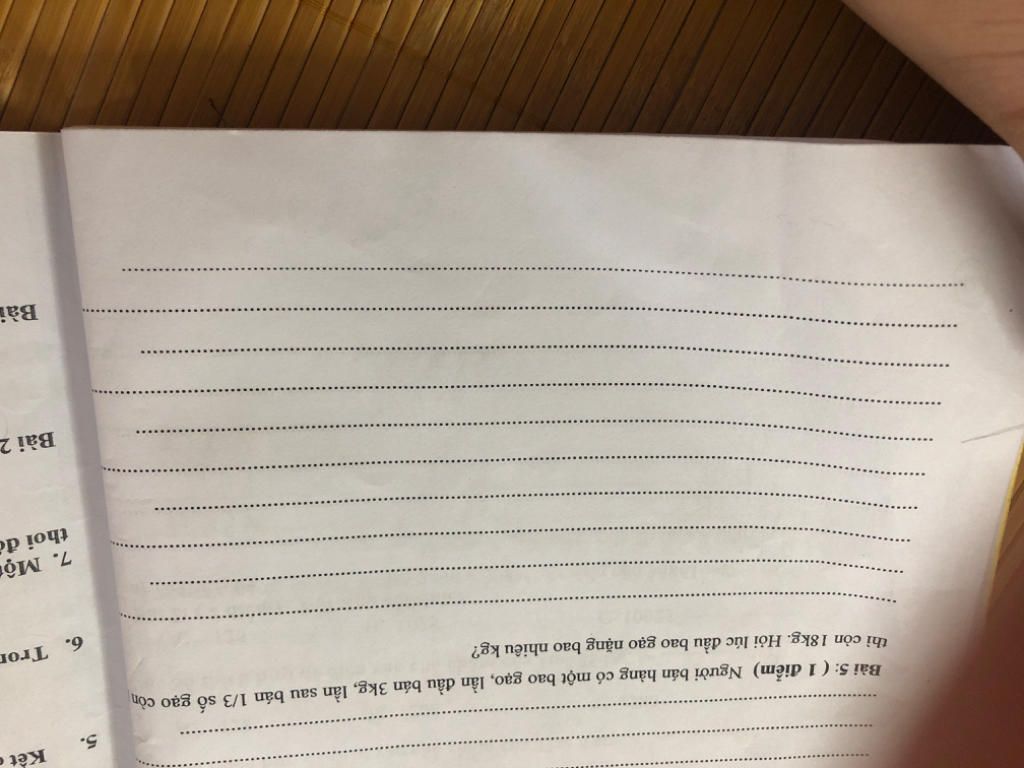 Bài 5: ( 1 điểm) Người bán hàng có một bao gạo, lần đầu bán 3kg, lần sau bán 1/3 số gạo còn
thì còn 18kg. Hỏi lúc đầu bao gạo nặng bao nhiêu kg?
5.
6.
7.
thoi
Bài 2
Bài